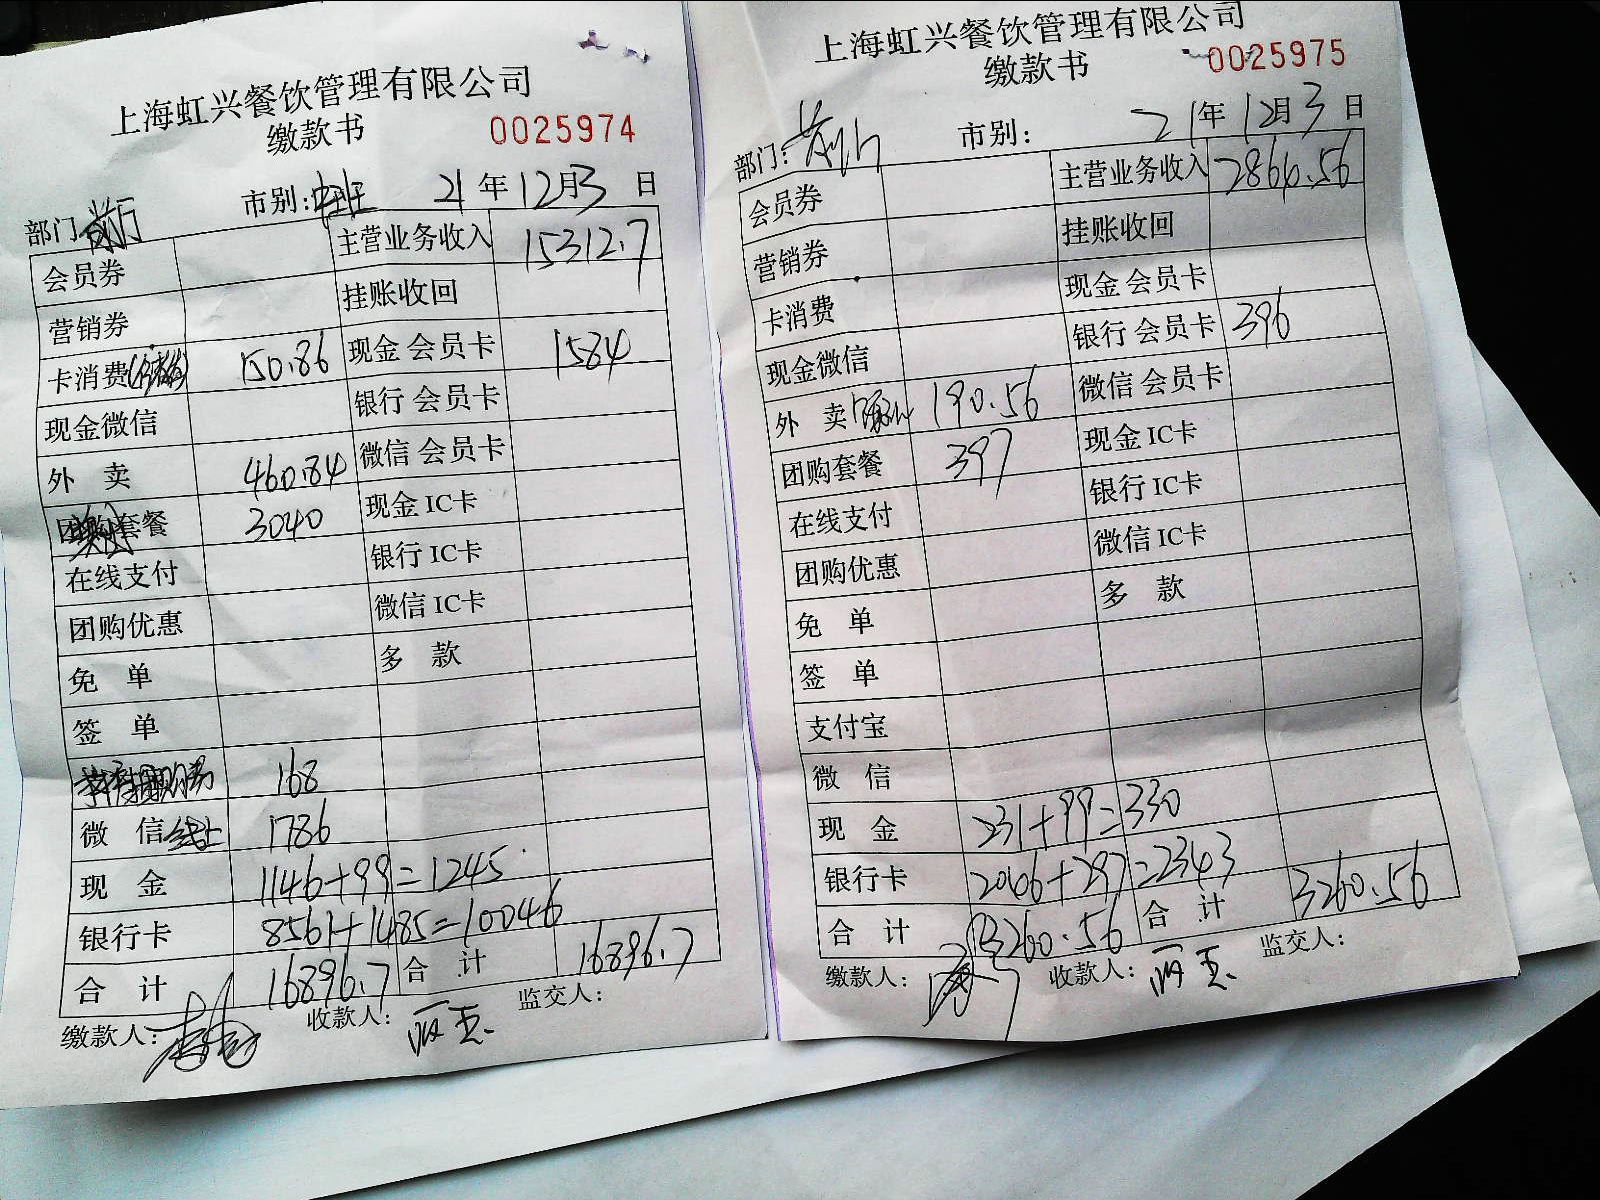 上海虹兴餐饮管理有限公司
缴款书
0025974
部门 前厅 市别: 中班 21年12月3日
会员券 主营业务收入 15312.7
营销券 挂账收回
卡消费 150.86 现金 会员卡 1584
现金微信 银行 会员卡
外 卖 460.84 微信 会员卡
团购套餐 3040 现金 IC卡
在线支付 银行 IC卡
团购优惠 微信 IC卡
免 单 多 款
签 单
168
微 信 线上 1786
现 金 1146+99=1245
银行卡 8561+1485=10046
合 计 16896.7 合 计 16896.7
缴款人: 收款人: 监交人:
上海虹兴餐饮管理有限公司
缴款书
0025975
部门: 前厅 市别: 21年12月3日
会员券 主营业务收入 2864.56
营销券 挂账收回
卡消费 现金 会员卡
现金微信 银行 会员卡 396
外 卖 190.56 微信 会员卡
团购套餐 397 现金 IC卡
在线支付 银行 IC卡
团购优惠 微信 IC卡
免 单 多 款
签 单
支付宝
微 信
现 金 231+99=330
银行卡 2046+297=2343
合 计 3260.56 合 计 3260.56
缴款人: 收款人: 监交人: